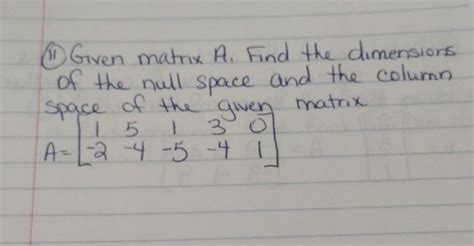 ⑪ Given matrix A. Find the dimensions
of the null space and the column
space of the given matrix
A = [1 5 1 3 0
-2 -4 -5 -4 1]